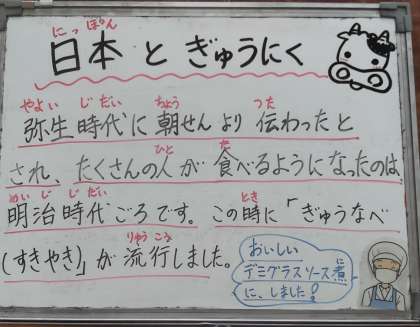 にっぽん
日本とぎゅうにく
やよい じだい ちょう つた
弥生時代に朝せんより伝わったと
ひと た
され、たくさんの人が食べるようになったのは、
めいじ じだい とき
明治時代ごろです。この時に「ぎゅうなべ
りゅうこう
(すきやき)」が流行しました。
おいしい
に
デミグラスソース煮
に、しました!